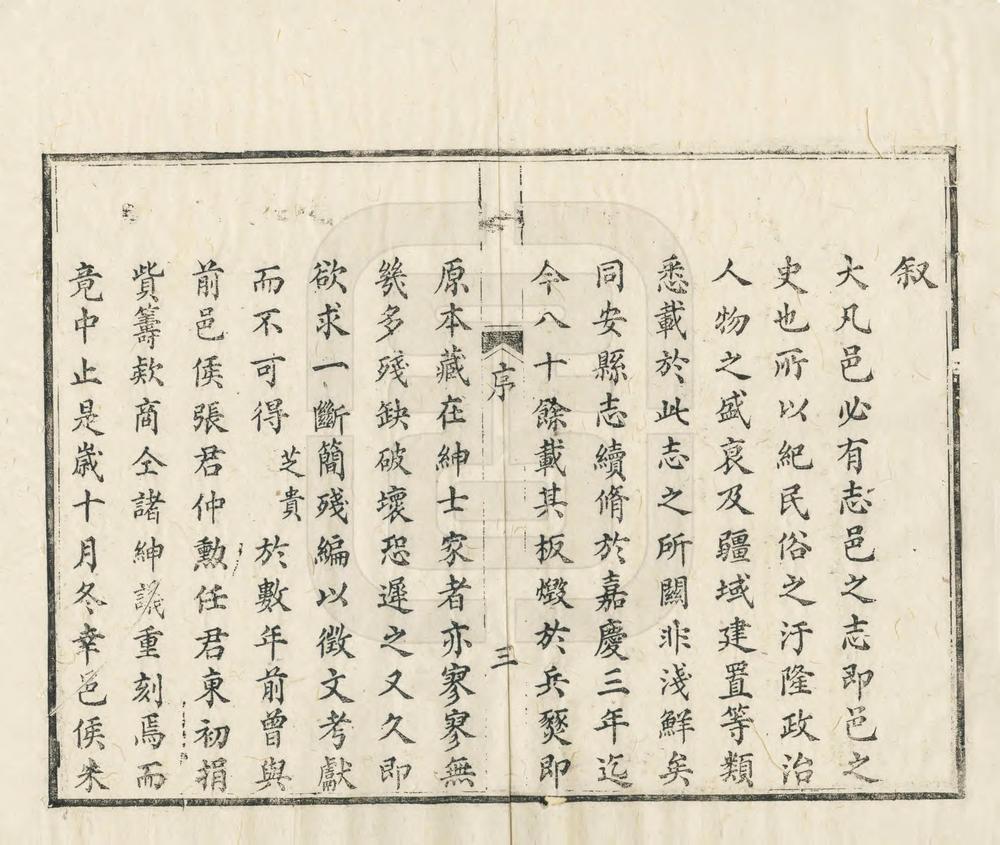 叙
大凡邑必有志邑之志即邑之
史也所以紀民俗之汙隆政治
人物之盛衰及疆域建置等類
悉載於此志之所關非淺鮮矣
同安縣志續脩於嘉慶三年迄
今八十餘載其板燬於兵燹即
序
三
原本藏在紳士家者亦寥寥無
幾多殘缺破壞恐遲之又久即
欲求一斷簡殘編以徵文考獻
而不可得芝貴於數年前曾與
前邑侯張君仲勲任君東初捐
貲籌欵商仝諸紳議重刻焉而
竟中止是嵗十月冬幸邑侯朱